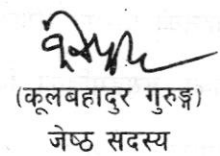 (कूलबहादुर गुरुङ्ग)
जेष्ठ सदस्य